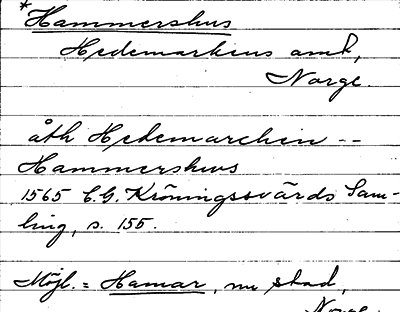 *Hammershus
Hedemarkens amt,
Norge.
åth Hedemarchen --
Hammershws
1565 C.G. Kröningssvärds Sam-
ling, s. 155.
Möjl. = Hamar, nu stad,
Norge